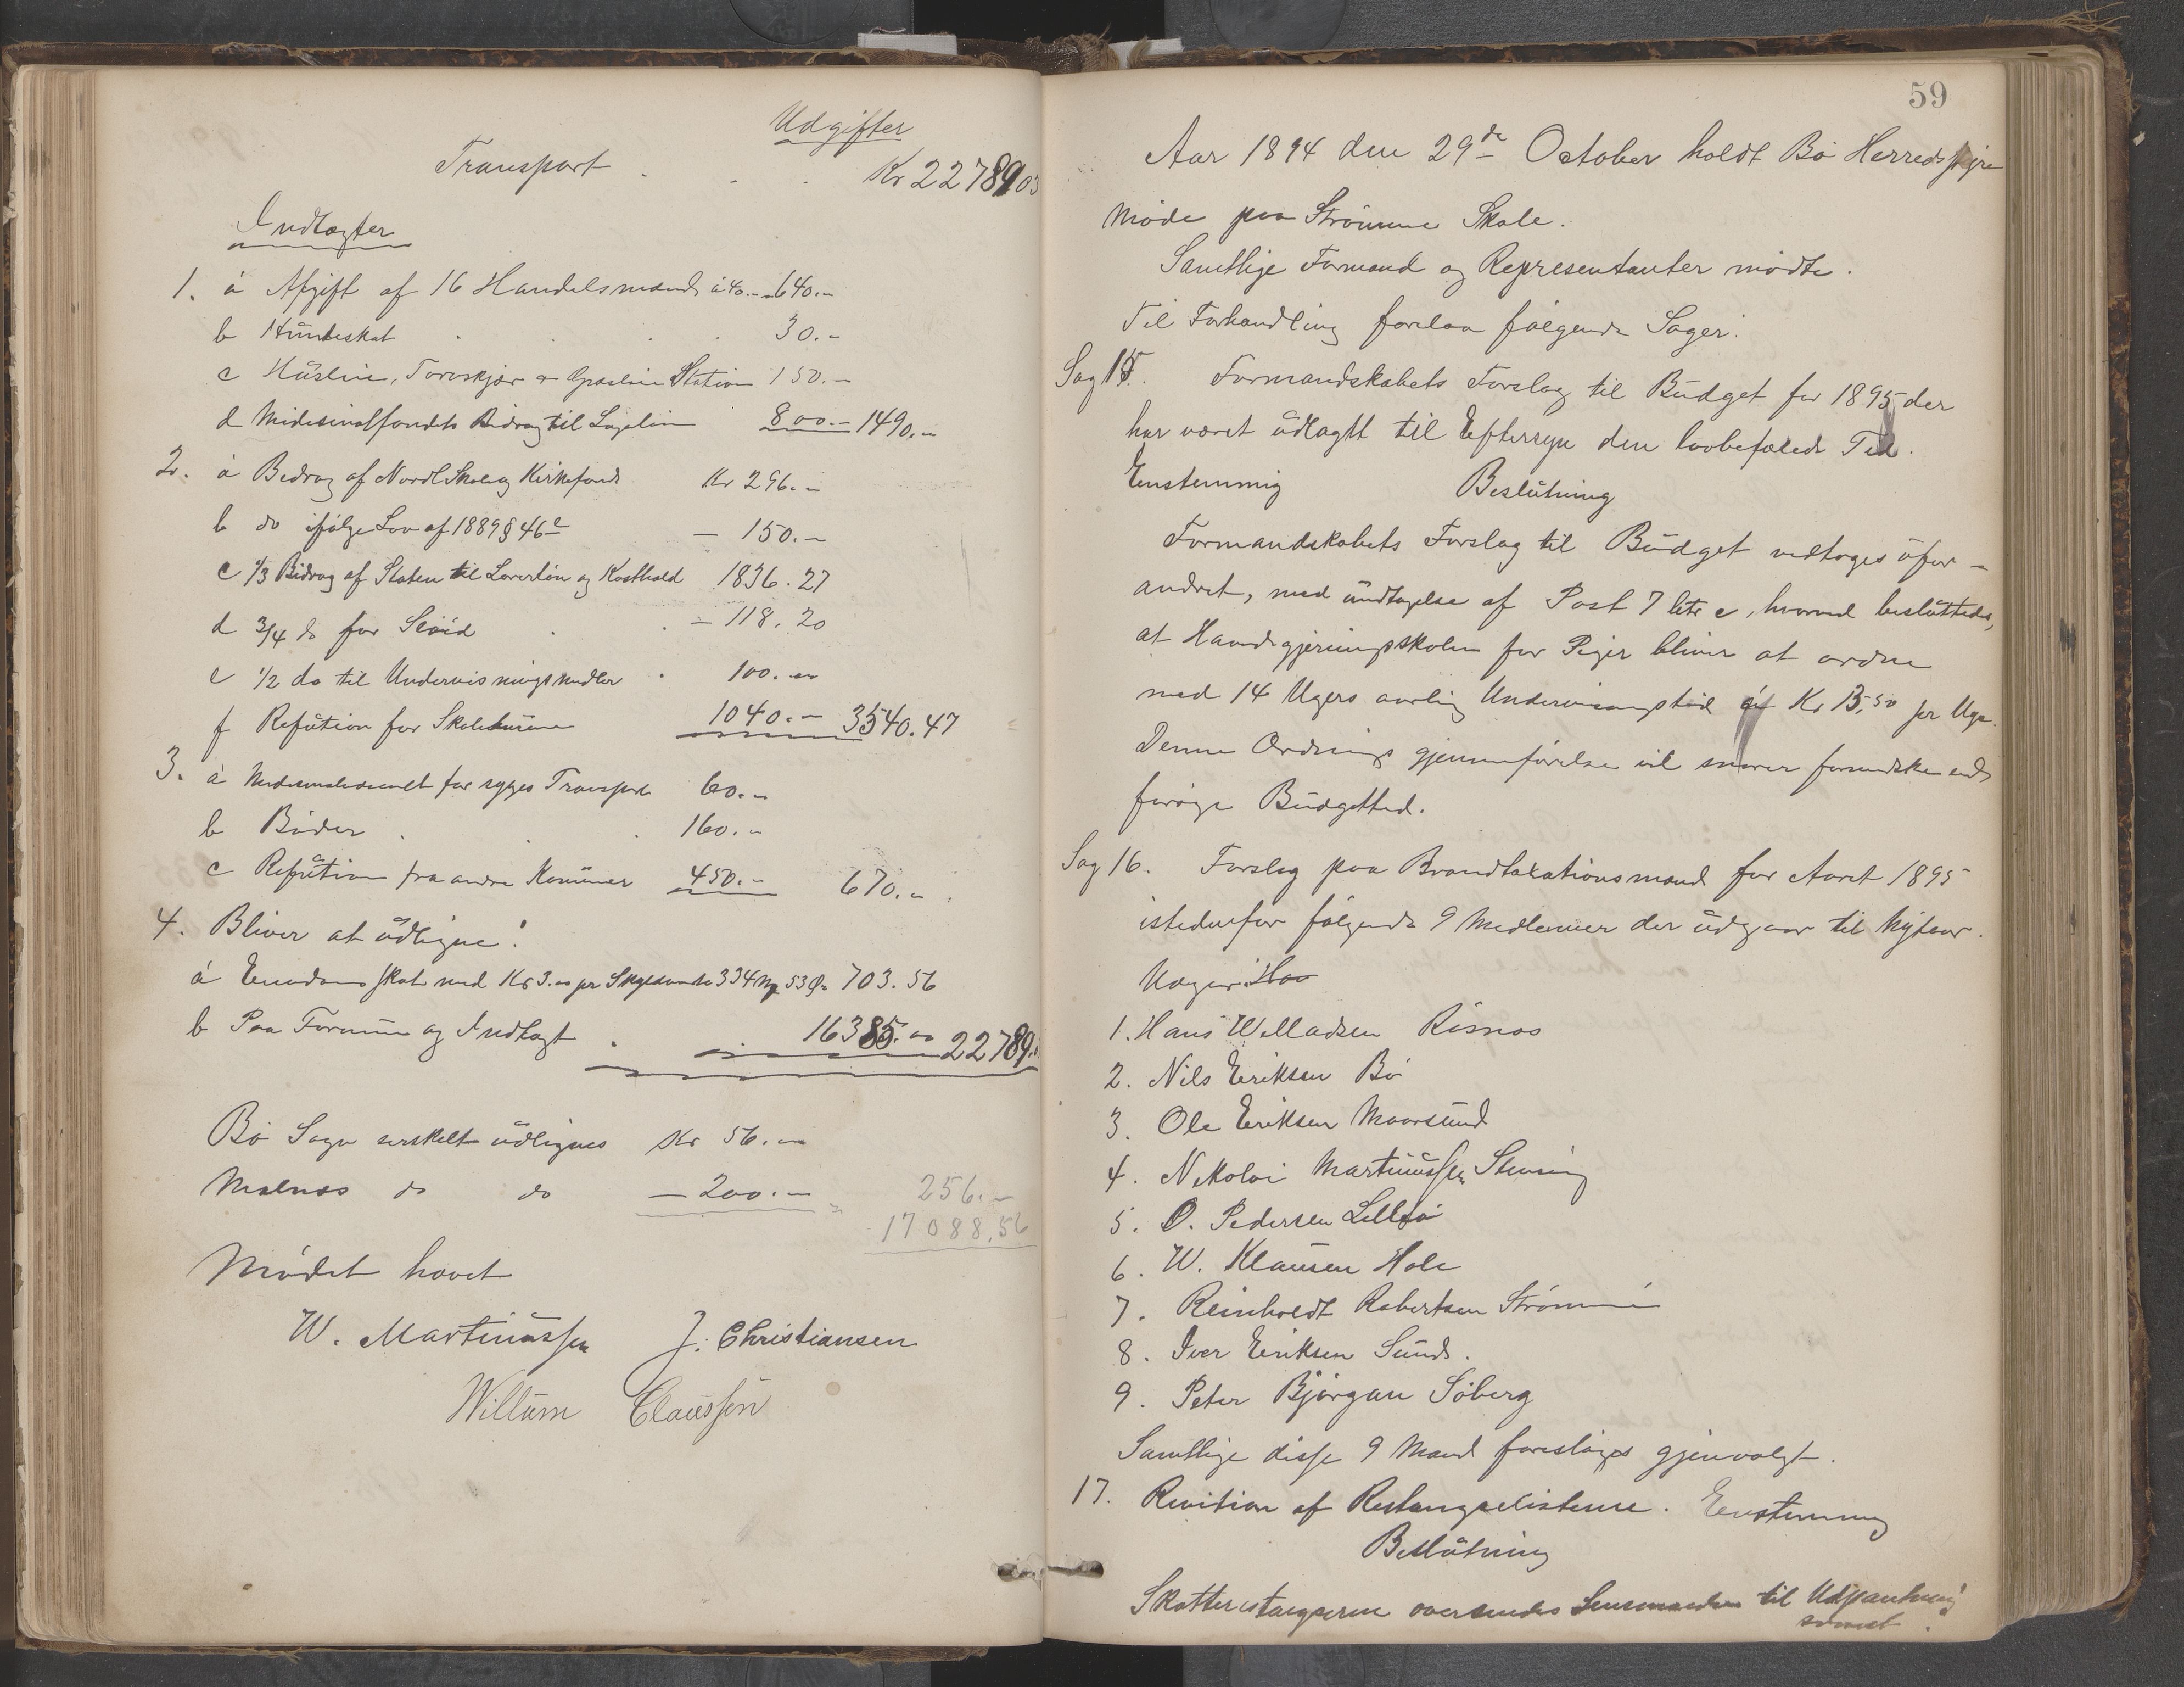 Udgifter
Transport . . . Kr 22789 03
Indtægter
1. a Afgift af 16 Handelsmænd à 40.- 640.-
b Hundeskat . . . 30.-
c Husleie, Station 150.-
d Medisinalfondets Bidrag til Lægeløn 800.- 1490.-
2. a Bidrag af Nordl Skole og Kirkefond Kr 296.-
b do ifølge Lov af 1889 § 46 - 150.-
c 1/3 Bidrag af Staten til Lærerløn og Kosthold 1836.27
d 3/4 do for Sløid . . - 118.20
e 1/2 do til Undervisningsmidler . 100.-
f Refution for Skolehusene 1040.- 3540.47
3. a for syges Transport 60.-
b Bøder . . 160.-
c Refution fra andre Komuner 450.- 670.-
4. Bliver at udligne:
a Eiendomsskat med Kr 3.- pr Skyldmark 234 M 53 Ø. 703.56
b Paa Formue og Indtægt . 16385.- 22789.
Bø Sogn serskelt udlignes Kr 56.-
Malnes do do - 200.- 256.-
17088.56
Mødet hævet
W. Martinussen J. Christiansen
Willum Claussen
59
Aar 1894 den 29de October holdt Bø Herredsstyre
Møde paa Strømme Skole.
Samtlige Formænd og Representanter mødte.
Til Forhandling forelaa følgende Sager:
Sag 15. Formandskabets Forslag til Budget for 1895 der
har været udlagtt til Eftersyn den lovbefalede Tid.
Enstemmig Beslutning
Formandskabets Forslag til Budget vedtoges ufor-
andret, med undtagelse af Post 7 litr e, hvorved besluttedes,
at Haandgjerningsskolen for Piger bliver at ordne
med 14 Ugers aarlig Undervisningstid á Kr 3,50 pr Uge.
Denne Ordnings gjennemførelse vil snarer formindske end
forøge Budgetted.
Sag 16. Forslag paa Brandtaxationsmænd for Aaret 1895
istedenfor følgende 9 Medlemmer der udgaar til Nytaar.
1. Hans Willadsen Risnæs
2. Nils Eriksen Bø
3. Ole Eriksen Maarsund
4. Nikolai Martinussen Steinsing
5. O. Pedersen Lilleø
6. W. Klausen Hole
7. Reinholdt Robertsen Strømme
8. Iver Eriksen Sund.
9. Peter Bjørgan Søberg
Samtlige disse 9 Mænd foresloges gjenvalgt.
17. Revition af Restangselisterne. Eenstemmig
Beslutning
Skatterestangserne oversendes Lensmanden til Udpantning
snarest.